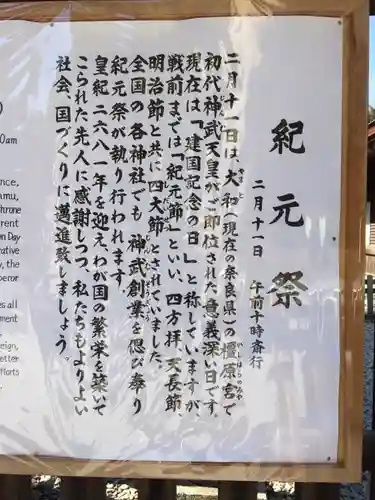 紀元祭
二月十一日 午前十時斎行
二月十一日は、大和(現在の奈良県)の橿原宮で
やまと
かしはらのみや
初代神武天皇がご即位された意義深い日です。
現在は「建国記念の日」と称していますが
戦前までは「紀元節」といい、四方拝、天長節、
明治節と共に四大節とされていました。
全国の各神社でも神武創業を偲び奉り
紀元祭が執り行われます。
皇紀二六八一年を迎え、わが国の繁栄を築いて
こられた先人に感謝しつつ、私たちもよりよい
社会、国づくりに邁進致しましょう。
0am
nce,
amu,
hrone
rrent
on Day
rative
y, the
peror
es all
ment
eign,
etter
fforts